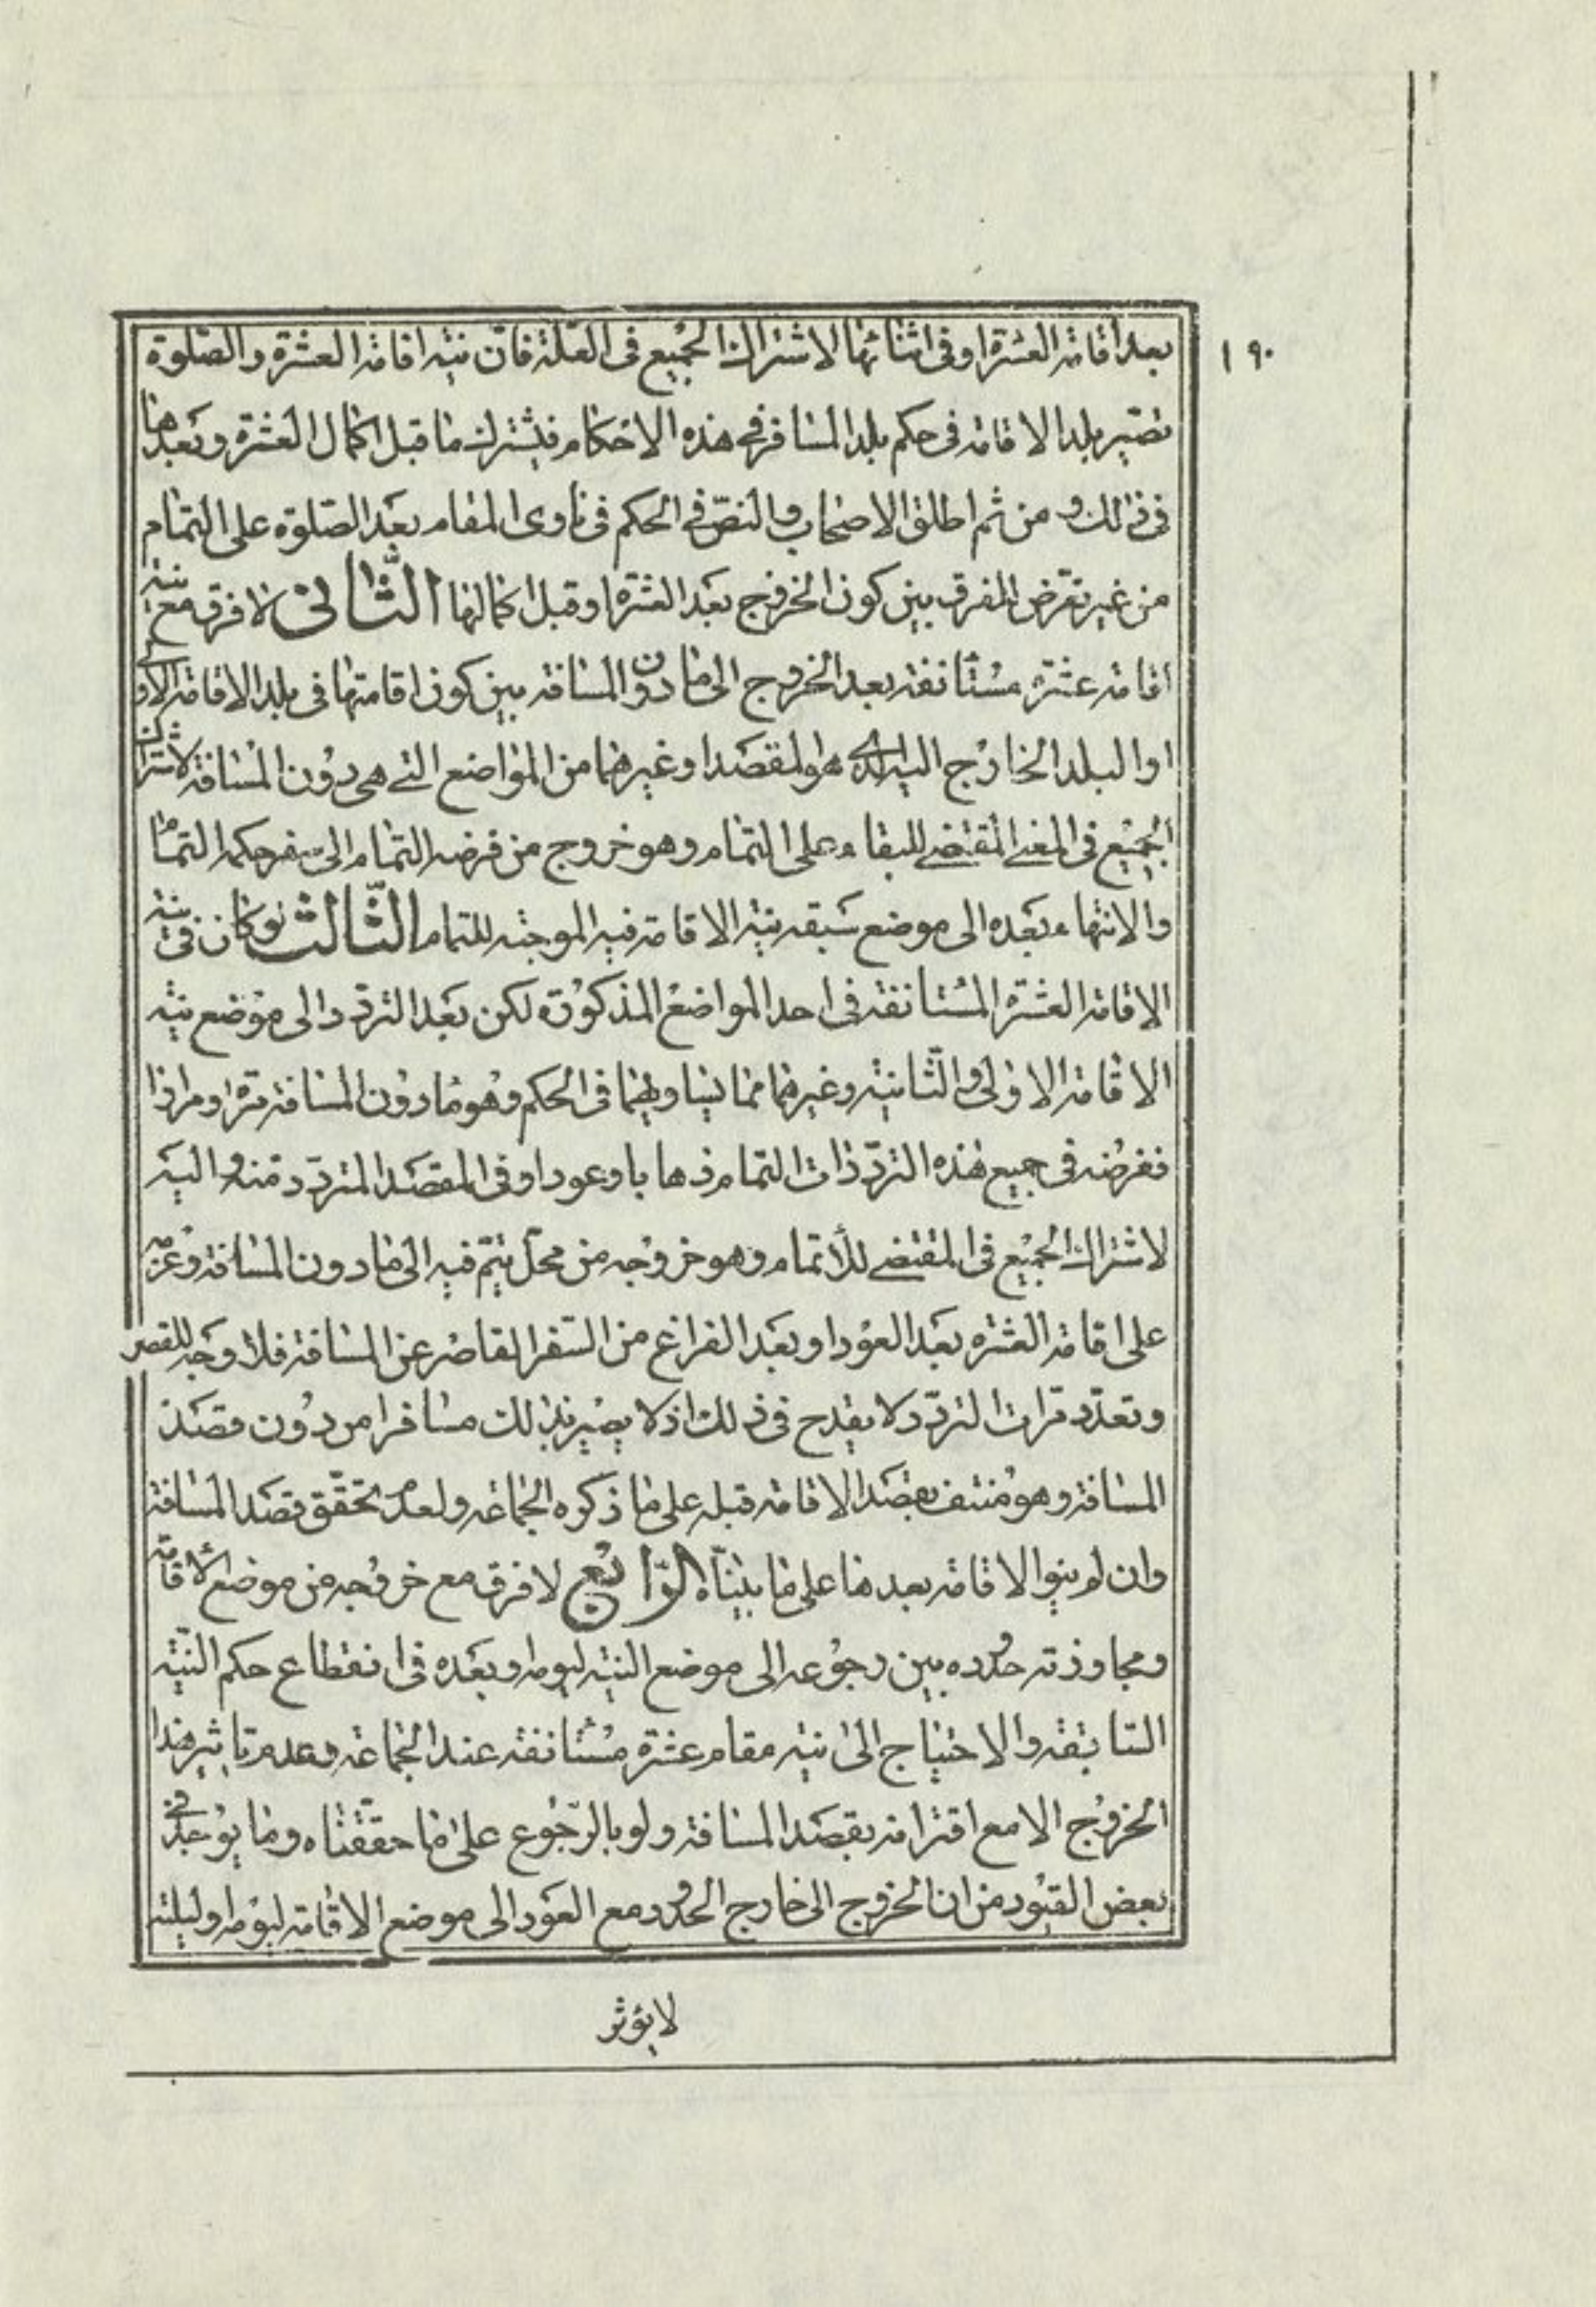 ١٩٠
بعد اقامة العشرة او فى اثنائها لاشتراك الجميع فى العلة فان نية اقامة العشرة والصلوة
تصير بلد الاقامة فى حكم بلد المسافر فى هذه الاحكام فيشترك ما قبل اكمال العشرة وبعدها
فى ذلك ومن ثم اطلق الاصحاب والنص فى الحكم فى ناوى المقام بعد الصلوة على التمام
من غير تعرض للفرق بين كون الخروج بعد العشرة او قبل اكمالها الثانى لا فرق مع نية
اقامة عشرة مستأنفة بعد الخروج الى ما دون المسافة بين كون اقامتها فى بلد الاقامة الاولى
او البلد الخارج اليه الذى هو المقصد او غيرهما من المواضع التى هى دون المسافة لاشتراك
الجميع فى المعنى المقتضى للبقاء على التمام وهو خروج من فرضه التمام الى سفر حكمه التمام
والانتهاء بعده الى موضع سبقه نية الاقامة فيه الموجبة للتمام الثالث لو كان فى نية
الاقامة العشرة المستأنفة فى احد المواضع المذكورة لكن بعد التردد الى موضع نية
الاقامة الاولى والثانية وغيرهما مما يساويهما فى الحكم وهو ما دون المسافة مرة او مرارا
ففرضه فى جميع هذه الترددات التمام ذهابا وعودا وفى المقصد المتردد منه واليه
لاشتراك الجميع فى المقتضى للأتمام وهو خروجه من محل يتم فيه الى ما دون المسافة وعزمه
على اقامة العشرة بعد العود او بعد الفراغ من السفر القاصر عن المسافة فلا وجه للقصر
وتعدد مرات التردد لا يقدح فى ذلك اذ لا يصير بذلك مسافرا من دون قصد
المسافة وهو منتف بقصد الاقامة قبله على ما ذكره الجماعة ولعدم تحقق قصد المسافة
وان لم ينو الاقامة بعدها على ما بيناه الرابع لا فرق مع خروجه من موضع الاقامة
ومجاوزته حدوده بين رجوعه الى موضع النية ليومه وبعده فى انقطاع حكم النية
السابقة والاحتياج الى نية مقام عشرة مستأنفة عند الجماعة وعدم تاثير هذا
الخروج الا مع اقترانه بقصد المسافة ولو بالرجوع على ما حققناه وما يوجد فى
بعض القيود من ان الخروج الى خارج الحدود مع العود الى موضع الاقامة ليومه او ليلته
لا يؤثر